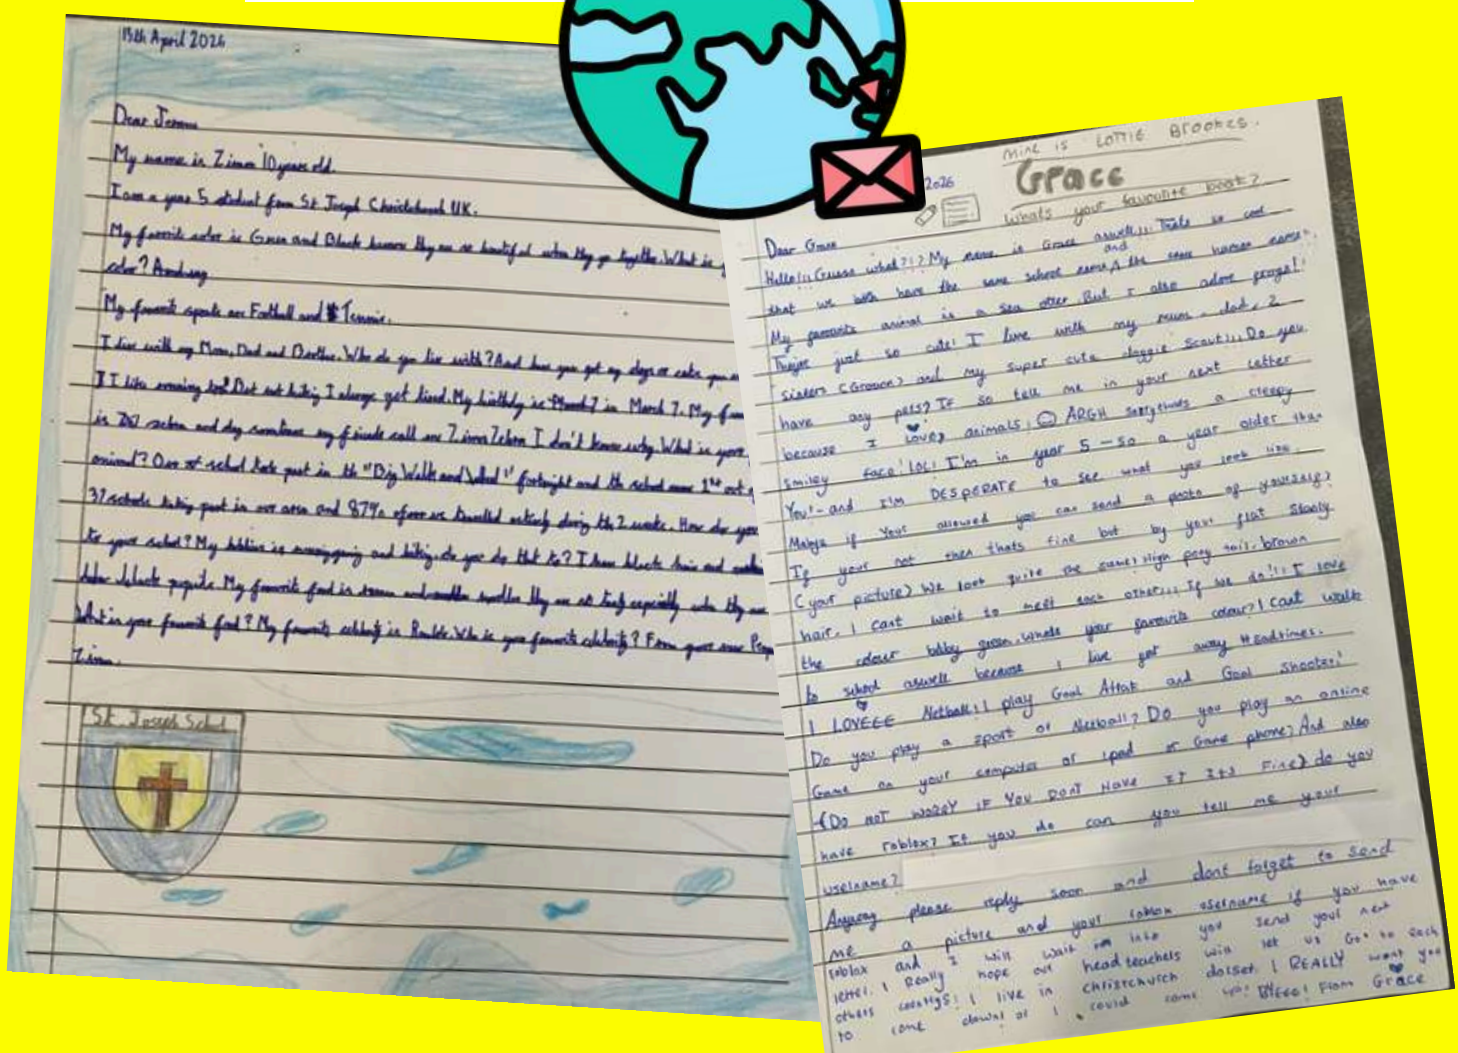 13th April 2026
Dear
My name is 10 years old.
I am a year 5 student from St Joseph Christchurch UK.
My favorite color is Green and Black because they are so beautiful when they go together. What is
color?
My favourite sports are Football and Tennis.
I live with my Mom, Dad and Brother. Who do you live with? And have you got any dogs or cats
I like running too! But not hiking I always get tired. My birthday is in March 7. My
is zebra and dog sometimes my friends call me Zebra I don't know why. What is your
animal? Our school took part in the "Big Walk and Wheel" fortnight and the school came 1st out of
37 schools taking part in our area and 87% of us travelled actively during the 2 weeks. How do you
to your school? My hobbies is and biking, do you do that to? I have black hair and
black pupils. My favourite food is and they are so tasty especially when they are
What is your favourite food? My favourite celebrity is Ronaldo. Who is your favourite celebrity? From your new
St. Joseph School
2026
mine is LOTTIE Brookes.
Grace
whats your favourite book?
Dear Grace
Hello!!! Guess what?!? My name is Grace aswell!!! Thats so cool
that we both have the same school name and the same human name!
My favourite animal is a sea otter. But I also adore frogs!!
Theyre just so cute! I live with my mum, dad, 2
sisters (Groaan) and my super cute doggie Scout!!! Do you
have any pets? If so tell me in your next letter
because I love animals! ☺ ARGH sorry thats a creepy
smiley face! lol! I'm in year 5 - so a year older than
You! - and I'm DESPERATE to see what you look like.
Mabye if your allowed you can send a photo of yourself?
If your not then thats fine but by your flat Stanly
(your picture) we look quite the same! High pony tail, brown
hair. I cant wait to meet each other!!! If we do!!! I love
the colour baby green. Whats your favourite colour? I cant walk
to school aswell because I live far away
I LOVEEE Netball!! I play Goal Attak and Goal Shooter!
Do you play a sport or Netball? Do you play an online
Game on your computer or ipad or Game phone? And also
(Do not worry if you Dont Have it Its Fine) do you
have roblox? If you do can you tell me your
username?
Anyway please reply soon and dont forget to send
me a picture and your roblox username if you have
roblox and I will wait into you send your next
letter. I Really hope our head teachers will let us Go to each
others I live in christchurch dorset. I REALLY want you
to come down! or I could come up! BYEEE! From Grace